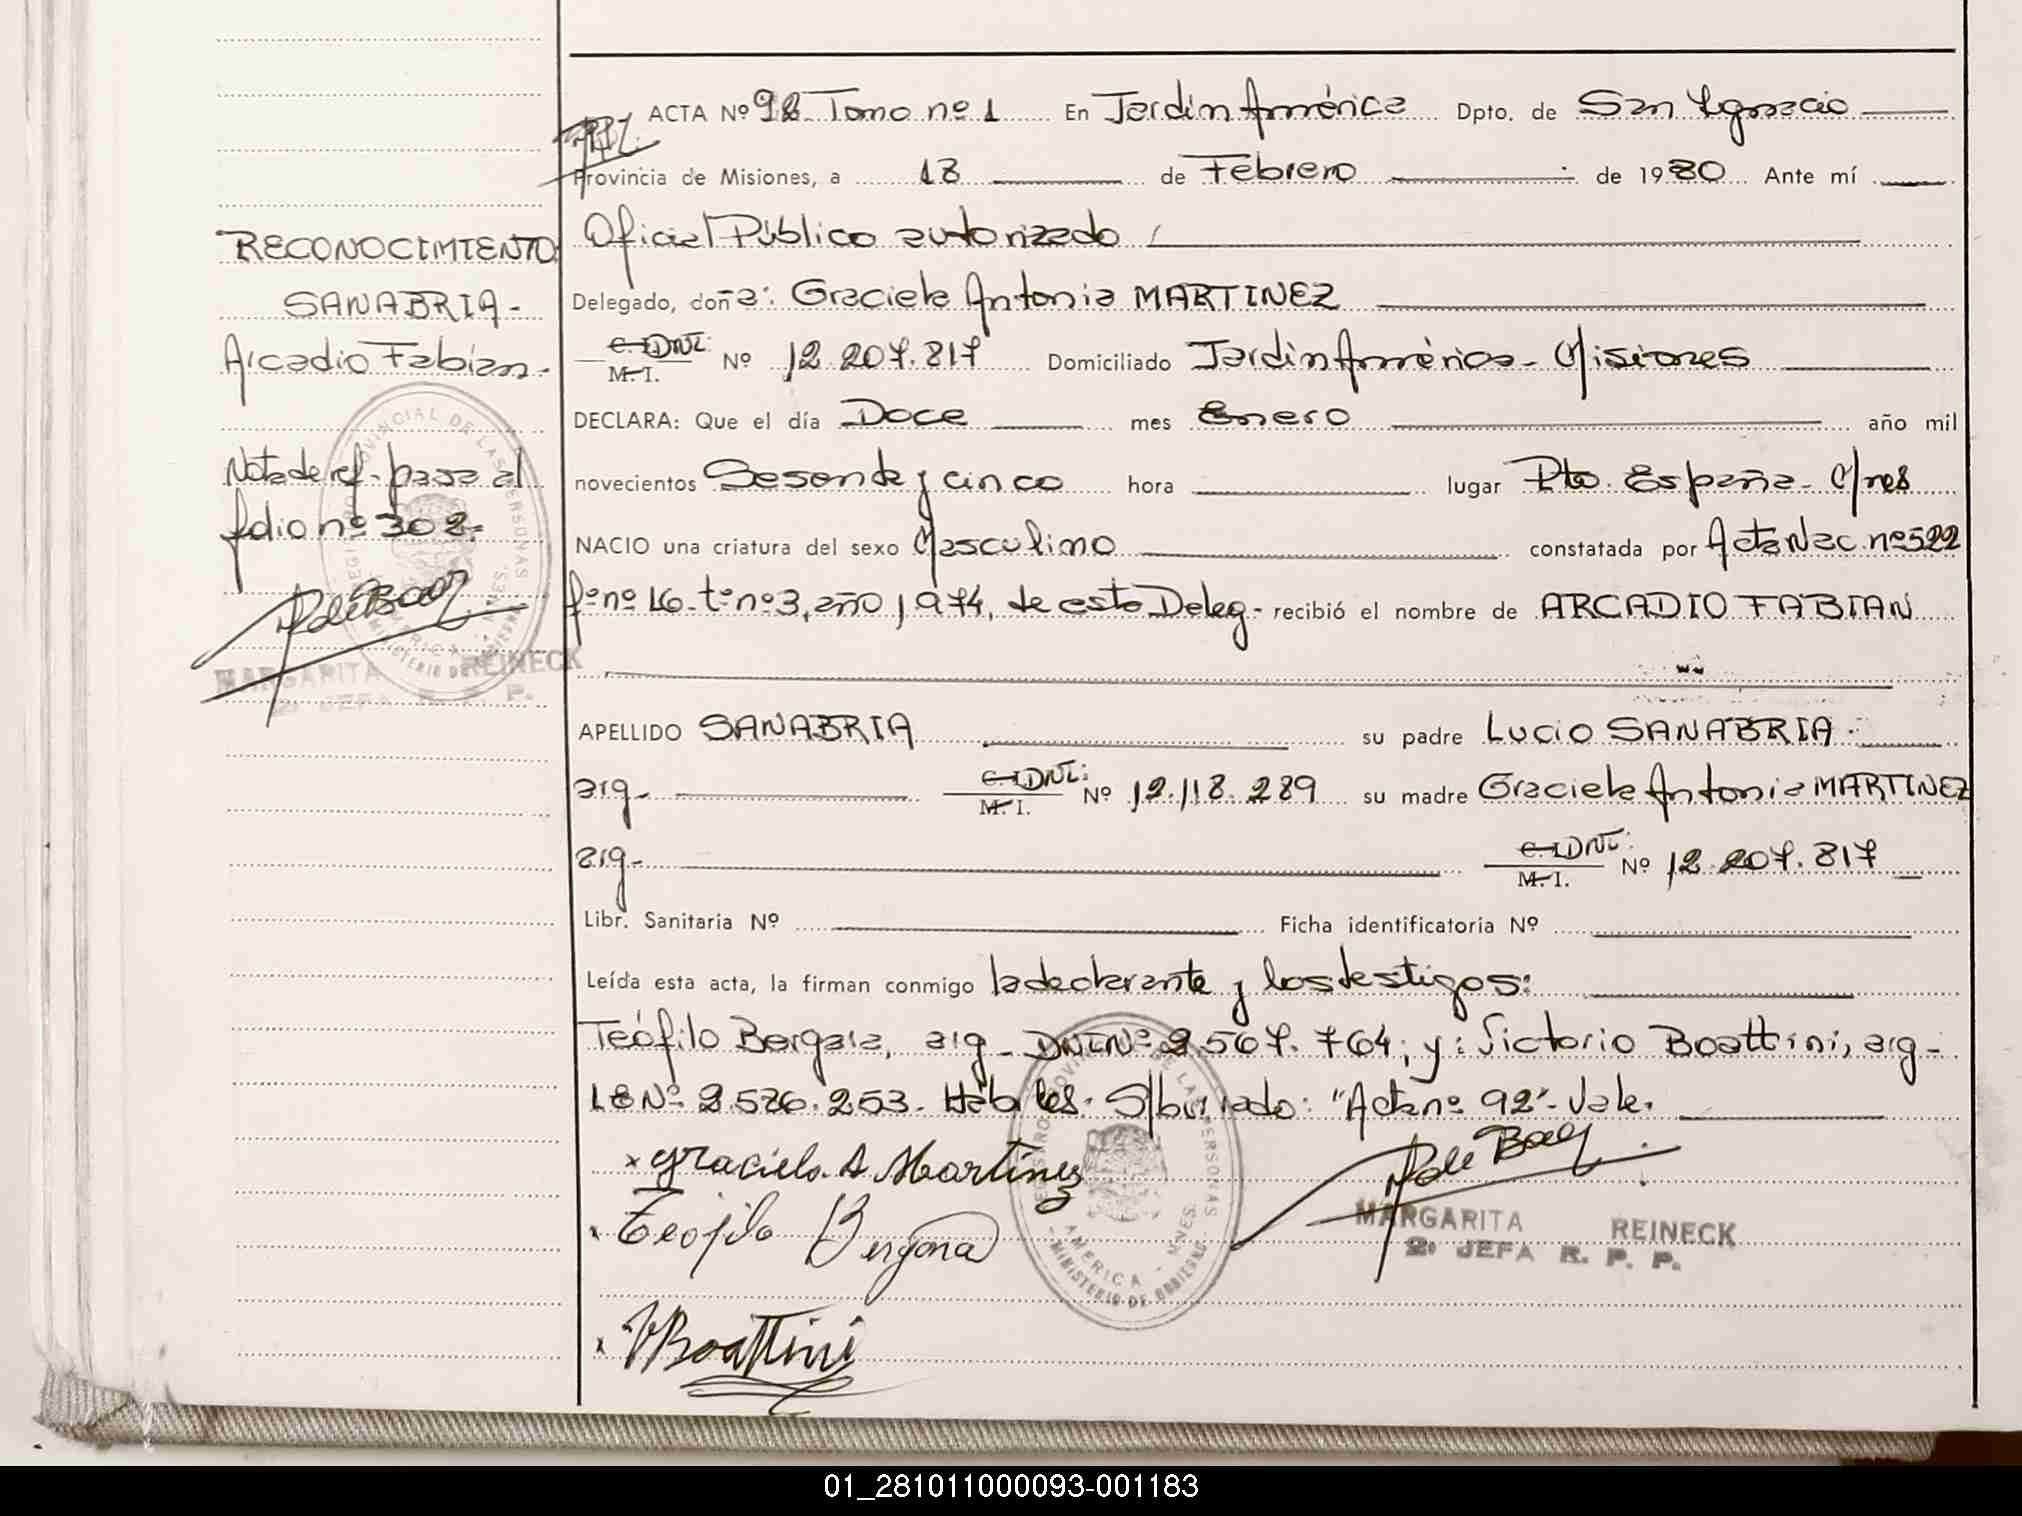 ACTA Nº 92 Tomo nº 1 En Jardin América Dpto. de San Ignacio
Provincia de Misiones, a 18 de Febrero de 1980 Ante mí
Oficial Público autorizado
Delegado, doña: Graciela Antonia MARTINEZ
C.I. DNI: M.I. Nº 12.207.817 Domiciliado Jardin América - Misiones
DECLARA: Que el día Doce mes Enero año mil
novecientos Sesenta y cinco hora lugar Pto. España - Mnes
NACIO una criatura del sexo Masculino constatada por Acta Nac. nº 522
fº nº 16 - tº nº 3, año 1974, de esta Deleg - recibió el nombre de ARCADIO FABIAN
APELLIDO SANABRIA su padre Lucio SANABRIA
arg - C.I. DNI: M.I. Nº 12.118.289 su madre Graciela Antonia MARTINEZ
arg - C.I. DNI: M.I. Nº 12.207.817
Libr. Sanitaria Nº Ficha identificatoria Nº
Leída esta acta, la firman conmigo la declarante y los testigos:
Teófilo Bergara, arg - DNI Nº 2.567.764; y: Victorio Boattini, arg -
LE Nº 2.576.253. Hábiles. S/borrado: "Acta nº 92" - Vale.
x Graciela A Martínez
Teofilo Vergara
VBoattini
MARGARITA REINECK
2º JEFA R. P. P.
REGISTRO PROVINCIAL DE LAS PERSONAS
AMERICA - MNES.
- MINISTERIO DE GOBIERNO -
RECONOCIMIENTO
SANABRIA -
Arcadio Fabian -
Nota de ref. pasa al
folio nº 302 -
REGISTRO PROVINCIAL DE LAS PERSONAS
AMERICA - MNES.
MINISTERIO DE GOBIERNO
MARGARITA REINECK
2º JEFA R. P. P.
01_281011000093-001183